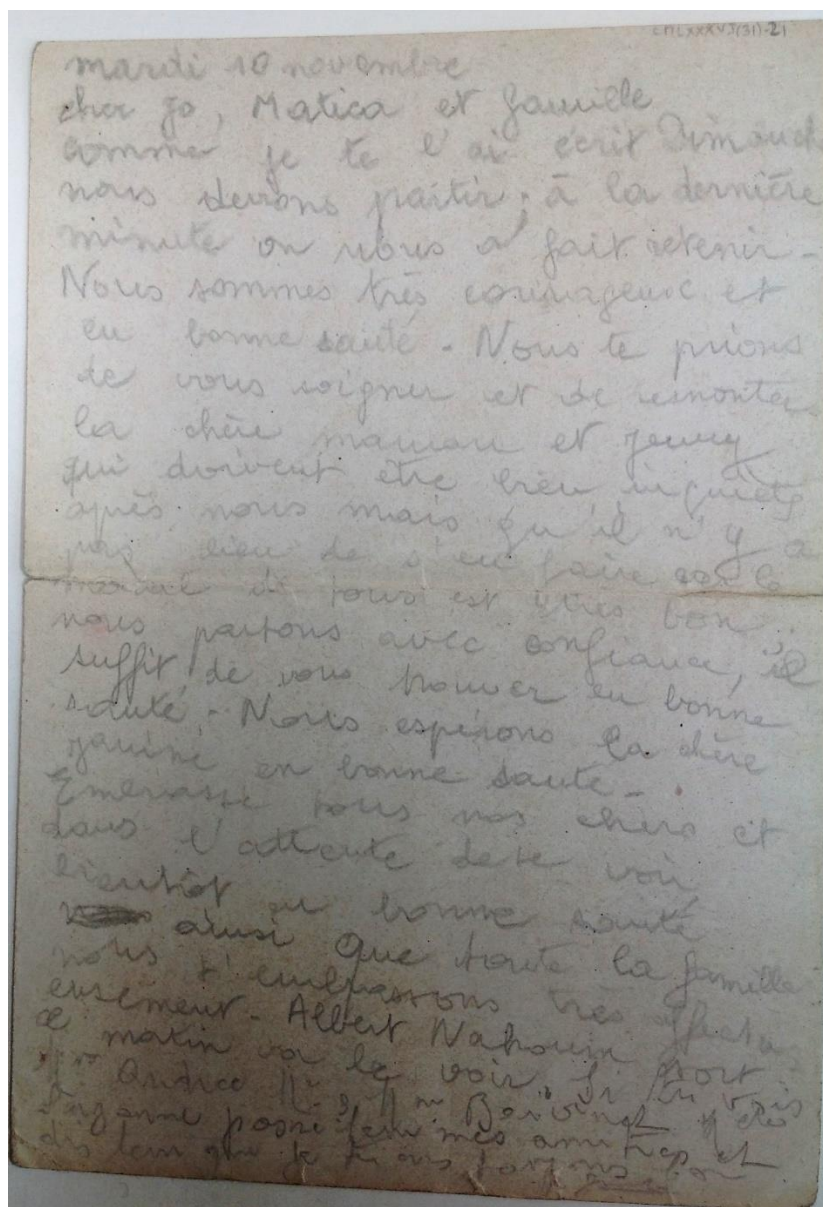 CMLXXXVI(31)-21
mardi 10 novembre
cher Jo, Matica et famille
comme je te l'ai écrit Dimanch
nous devons partir ; à la dernière
minute on nous a fait retenir -
Nous sommes très courageux et
en bonne santé - Nous te prions
de vous soigner et de remonter
la chère maman et Jenny
qui doivent être bien inquiète
après nous mais qu'il n'y a
pas lieu de s'en faire car le
moral de tous est très bon.
nous partons avec confiance, il
suffit de vous trouver en bonne
santé - Nous espérons la chère
Janine en bonne santé -
Embrasse tous nos chers et
dans l'attente de te voir
bientôt en bonne santé
ainsi que toute la famille
nous t'embrassons très affectu
eusement - Albert Nahoum sort
ce matin va le voir. Si tu vois
Mme Mme
Suzanne passe leur mes amitiés et
dis leur que je